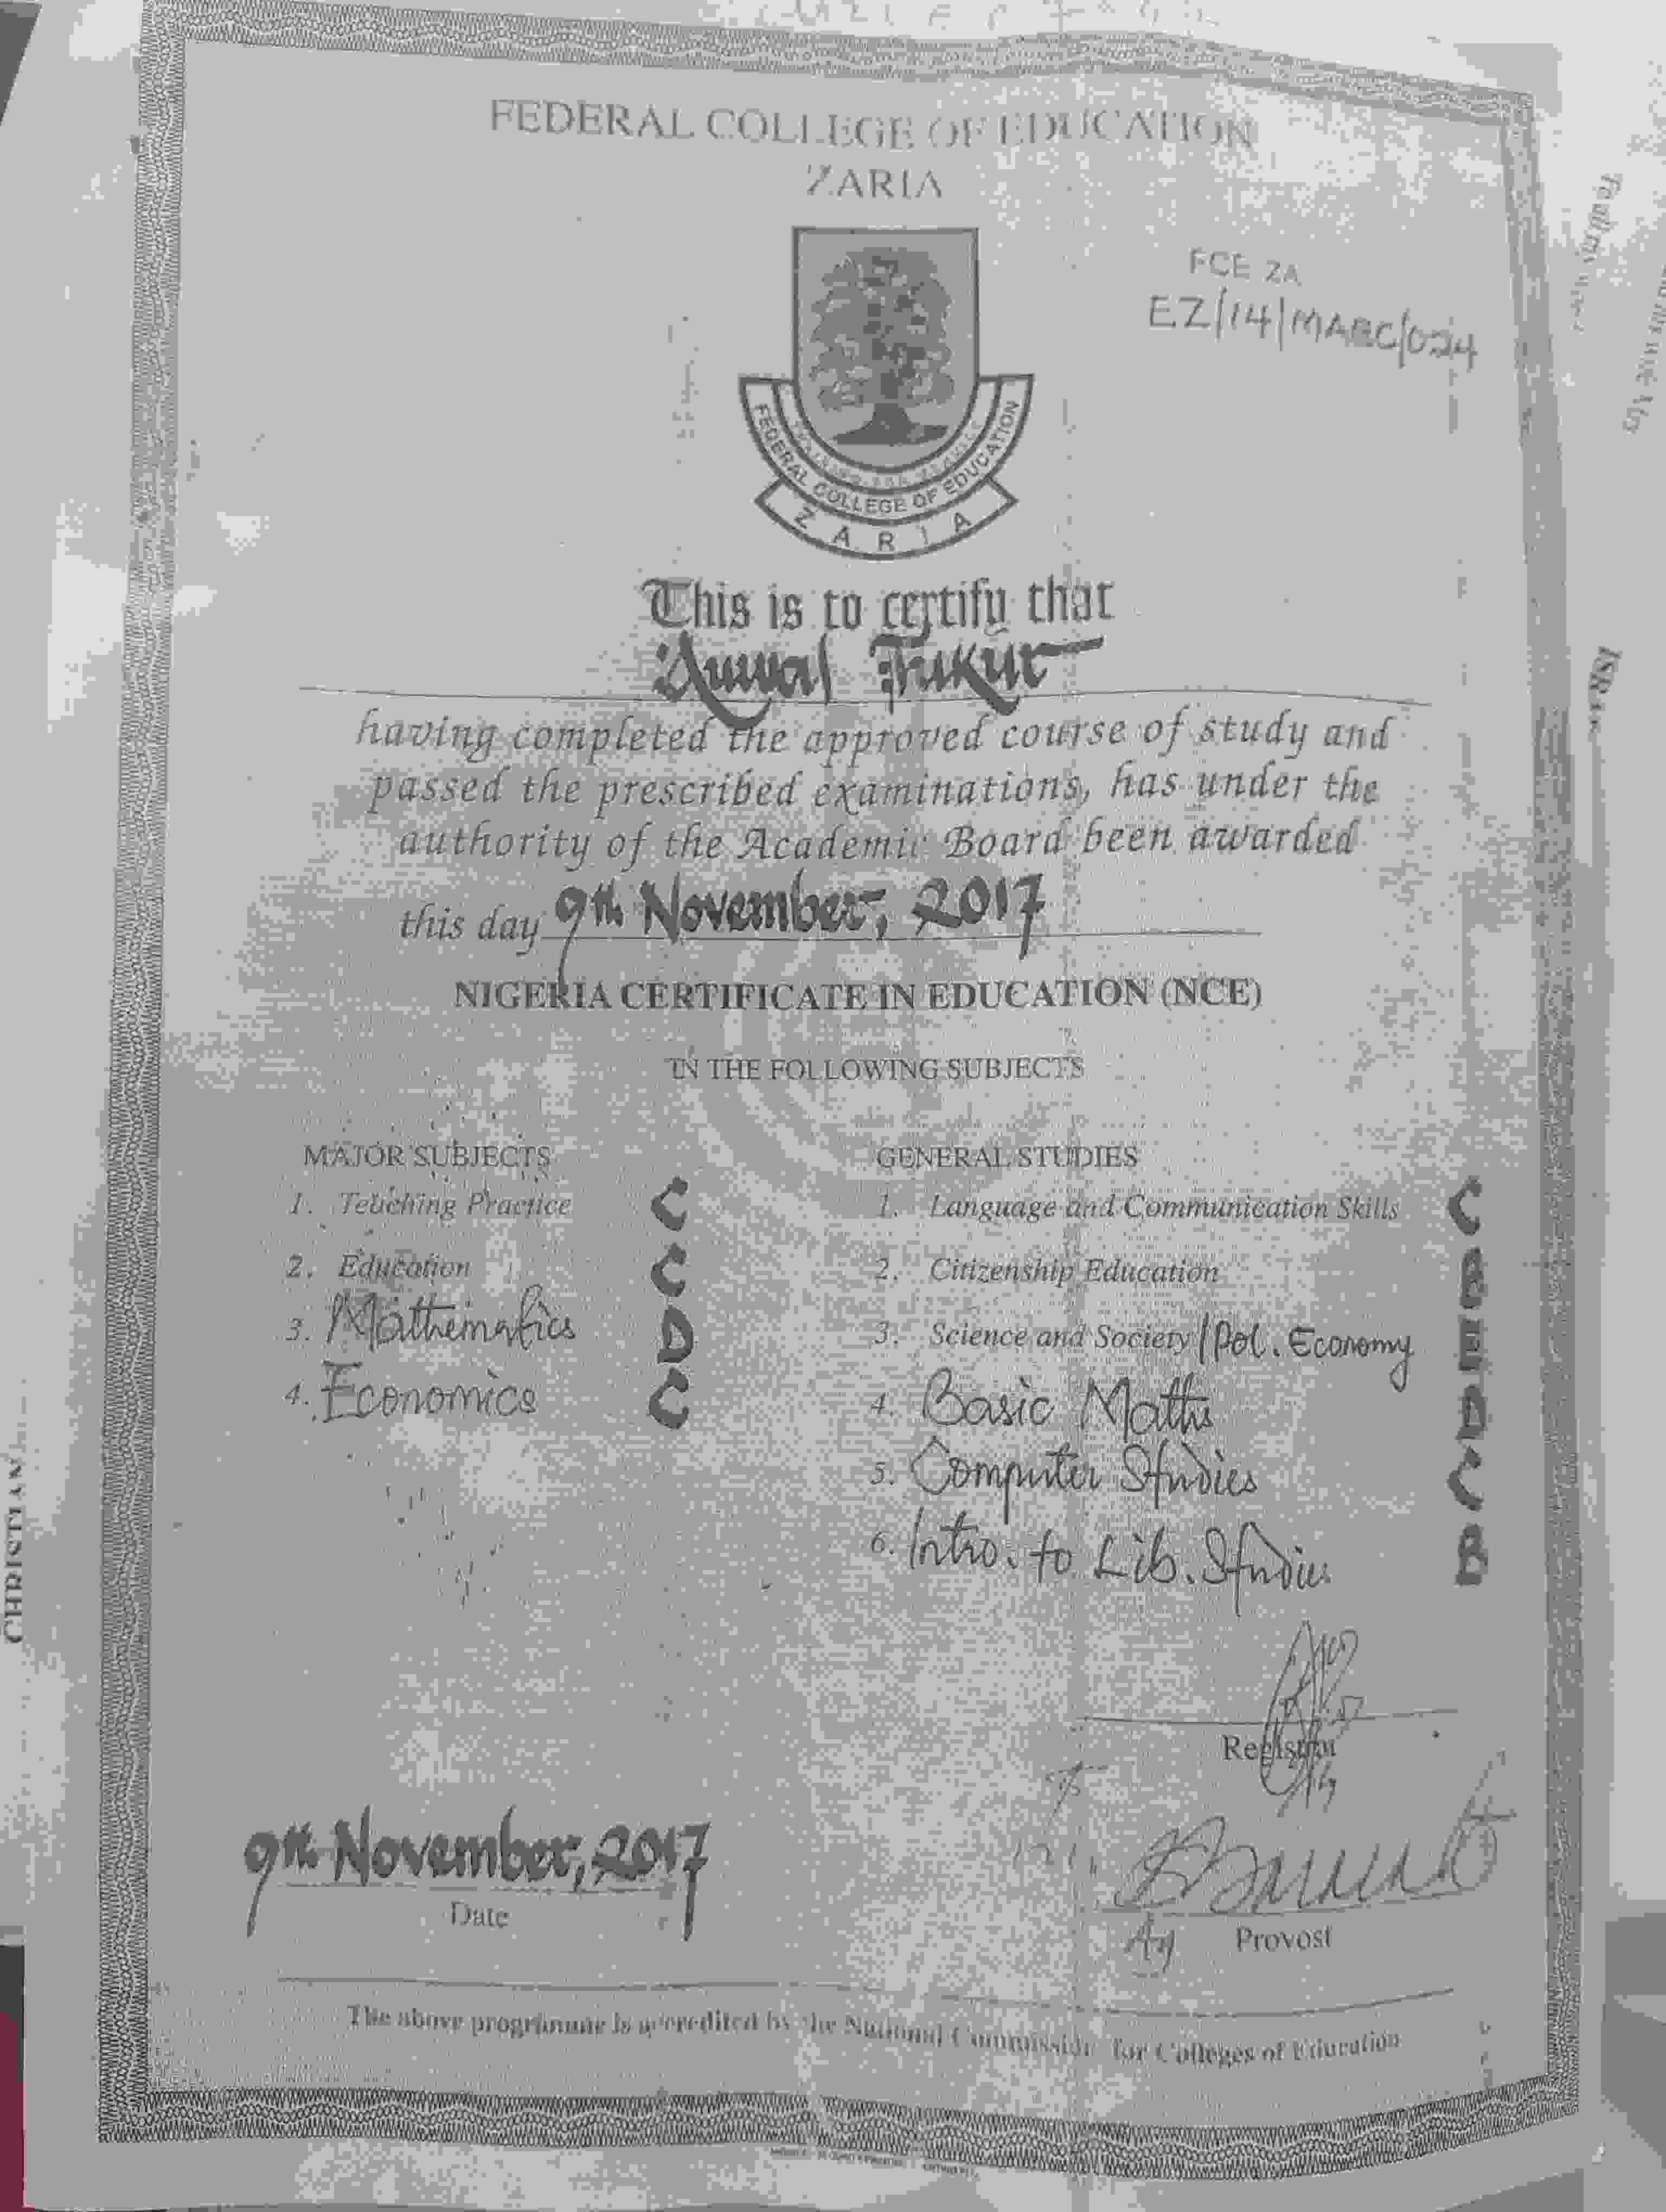 FEDERAL COLLEGE OF EDUCATION
ZARIA
FCE ZA
EZ/14/MAEC/024
FEDERAL COLLEGE OF EDUCATION
ZARIA
This is to certify that
Auwal Tukur
having completed the approved course of study and
passed the prescribed examinations, has under the
authority of the Academic Board been awarded
this day 9th November, 2017
NIGERIA CERTIFICATE IN EDUCATION (NCE)
IN THE FOLLOWING SUBJECTS
MAJOR SUBJECTS
1. Teaching Practice C
2. Education C
3. Mathematics D
4. Economics C
GENERAL STUDIES
1. Language and Communication Skills C
2. Citizenship Education B
3. Science and Society/Pol. Economy E
4. Basic Maths D
5. Computer Studies C
6. Intro. to Lib. Studies B
Registrar
9th November, 2017
Date
Ag Provost
The above programme is accredited by the National Commission for Colleges of Education
CHRISTIAN